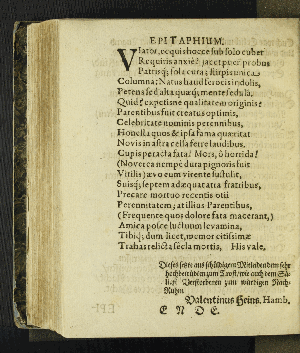 EPITAPHIUM.
Viator, ecquis hocce sub solo cubet
Requiris anxiè? jacet puer probus
Patrisq; sola cura; stirpis unica
Columna; Natus haud ferocis indolis,
Petens sed alta quæq; mente sedula.
Quid? expetisne qualitatem originis?
Parentibus fuit creatus optimis,
Celebritate nominis perennibus,
Honesta quos & ipsa fama quæritat
Novis in astra cella ferre laudibus.
Cupis peracta fata? Mors, ô horrida!
(Noverca nempè dura pignoris fuit
Vitilis) ævo eum virente sustulit,
Suisq; septem adæquat atra fratribus,
Precare mortuo recentis otii
Perennitatem; at illius Parentibus,
(Frequente quos dolore fata macerant,)
Amica posce luctuum levamina,
Tibiq; dum licet, memor citissimæ
Trahas relicta secla mortis, His vale.
Dieses setzte aus schüldigem Mitleiden dem sehr
hochbetrübten zum Trost, wie auch dem
Verstorbenen zum würdigen Nach-
Ruhm
Valentinus Heins, Hamb.
E N D E.